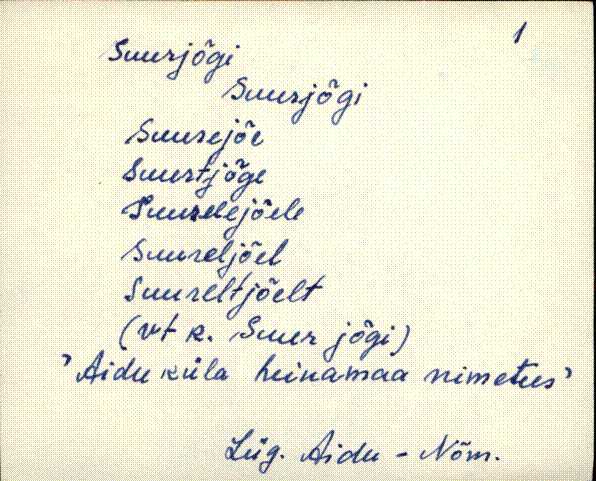 1
Suurjõgi
Suurjõgi
Suurejõe
Suurtjõge
Suurelejõele
Suureljõel
Suureltjõelt
(vt k. Suur jõgi)
'Aidu küla heinamaa nimetus'
Lüg. Aidu - Nõm.